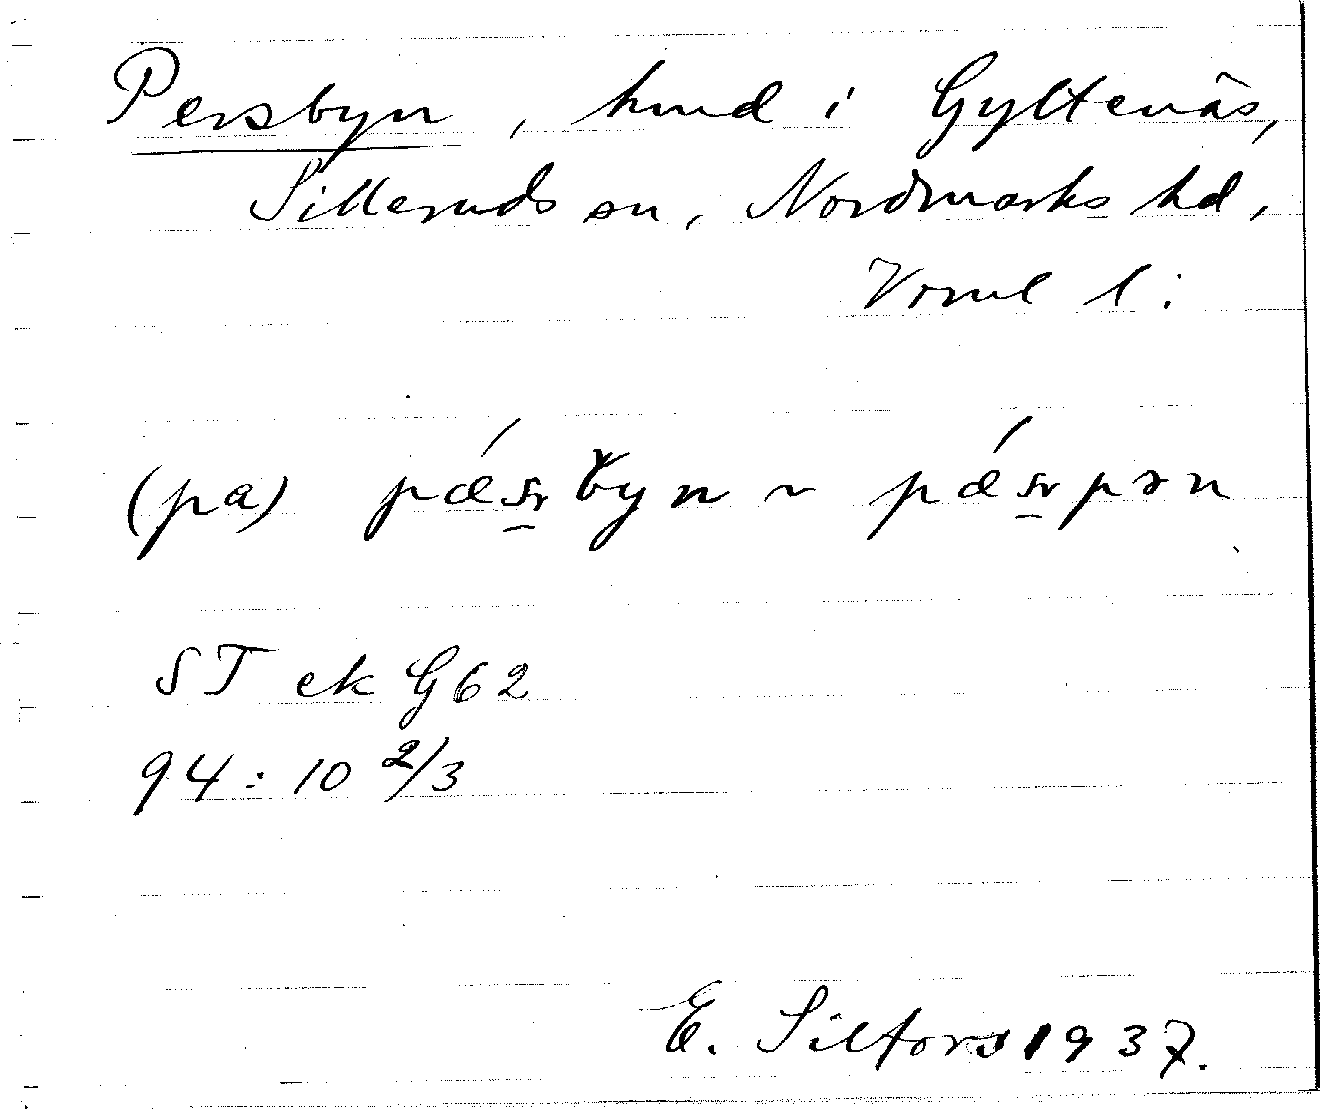 Persbyn, hmd i Gyltenäs,
Silleruds sn, Nordmarks hd,
Vrml l:
(pa) pǽʂbyn ~ pǽʂpən
ST ek G62
94:10 2/3
E. Silfors 1937.